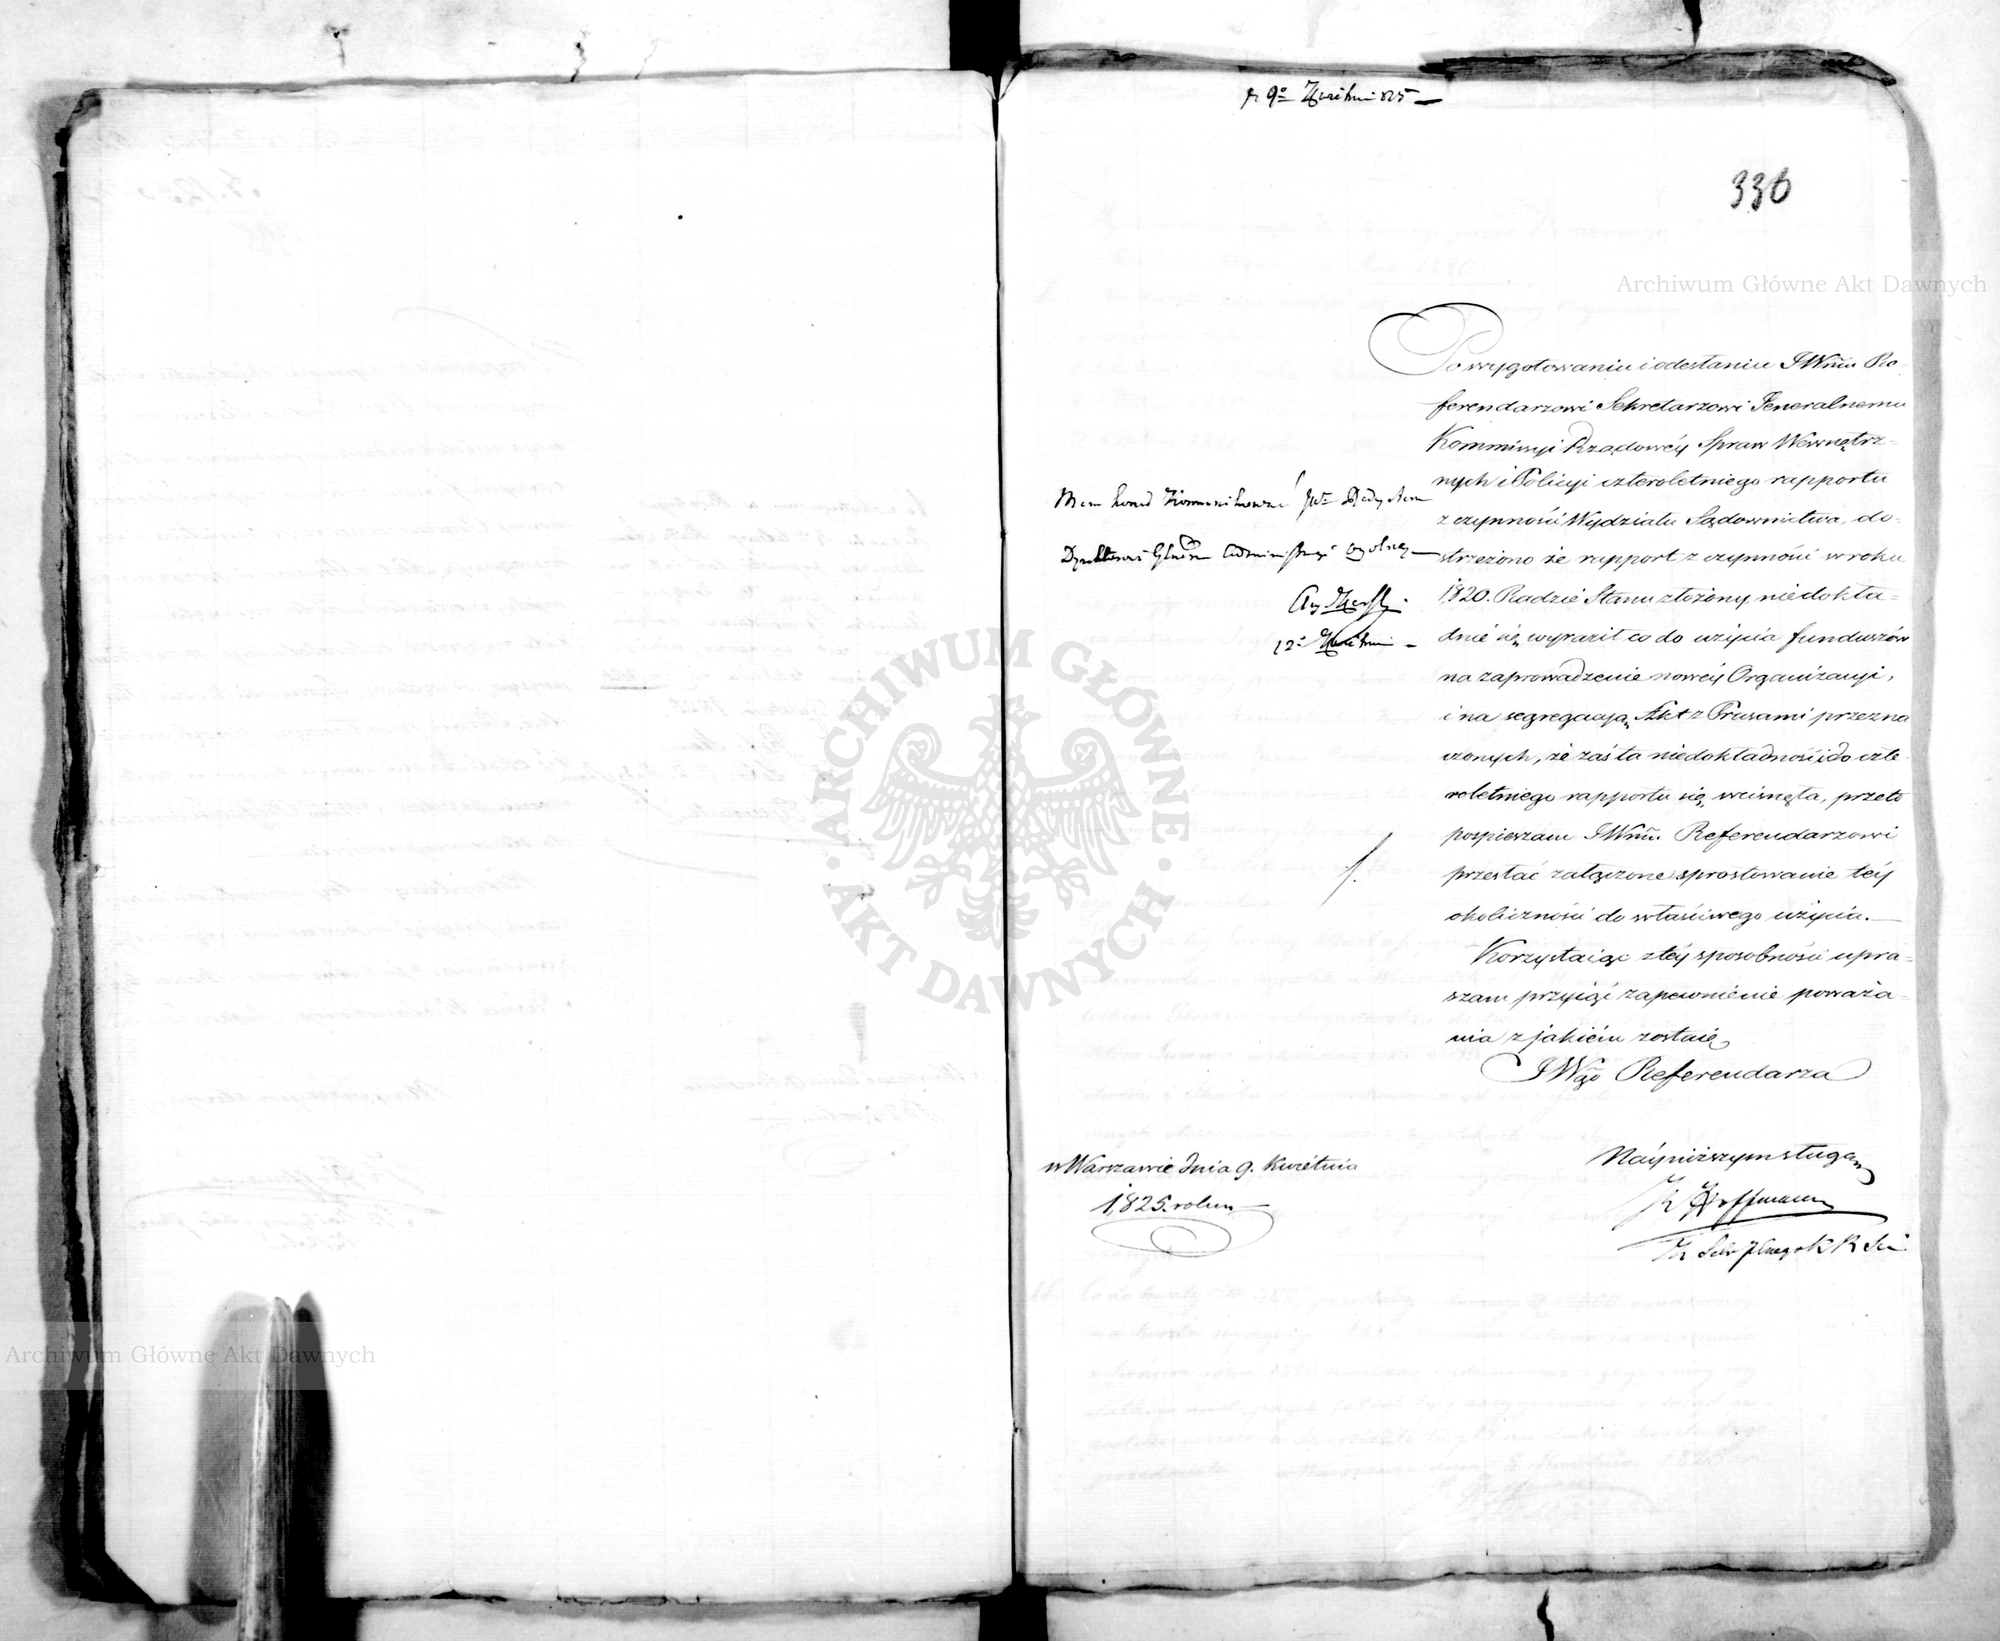 9º Kwietnia 825
336
Po wygotowaniu i odesłaniu JWmu Re-
ferendarzowi Sekretarzowi Jeneralnemu
Kommissyi Rządowéy Spraw Wewnętrz-
nych i Policyi czteroletniego rapportu
z czynności Wydziału Sądownictwa, do-
strzeżono że rapport z czynności w roku
1820. Radzie Stanu złożony, niedokła-
dnie się wyraził co do użycia funduszów
na zaprowadzenie nowéy Organizacyi,
i na segregacyą Akt z Prusami przezna
czonych, że zaś ta niedokładność i do czte-
roletniego rapportu się wcisnęła, przeto
pospieszam JWmu Referendarzowi
przesłać załączone sprostowanie téy
okoliczności do właściwego użycia.
Korzystaiąc z téy sposobności upra-
szam przyiąć zapewnienie poważa-
nia z jakiém zostaię
JWgo Referendarza
Mam honor zkommunikować JW
Dyrektorowi Administracyi ogólney
12º Kwietnia
w Warszawie dnia 9. Kwietnia
1825. roku
Nayniższym sługą
Hoffmann
Archiwum Główne Akt Dawnych
Archiwum Główne Akt Dawnych
ARCHIWUM GŁÓWNE
AKT DAWNYCH